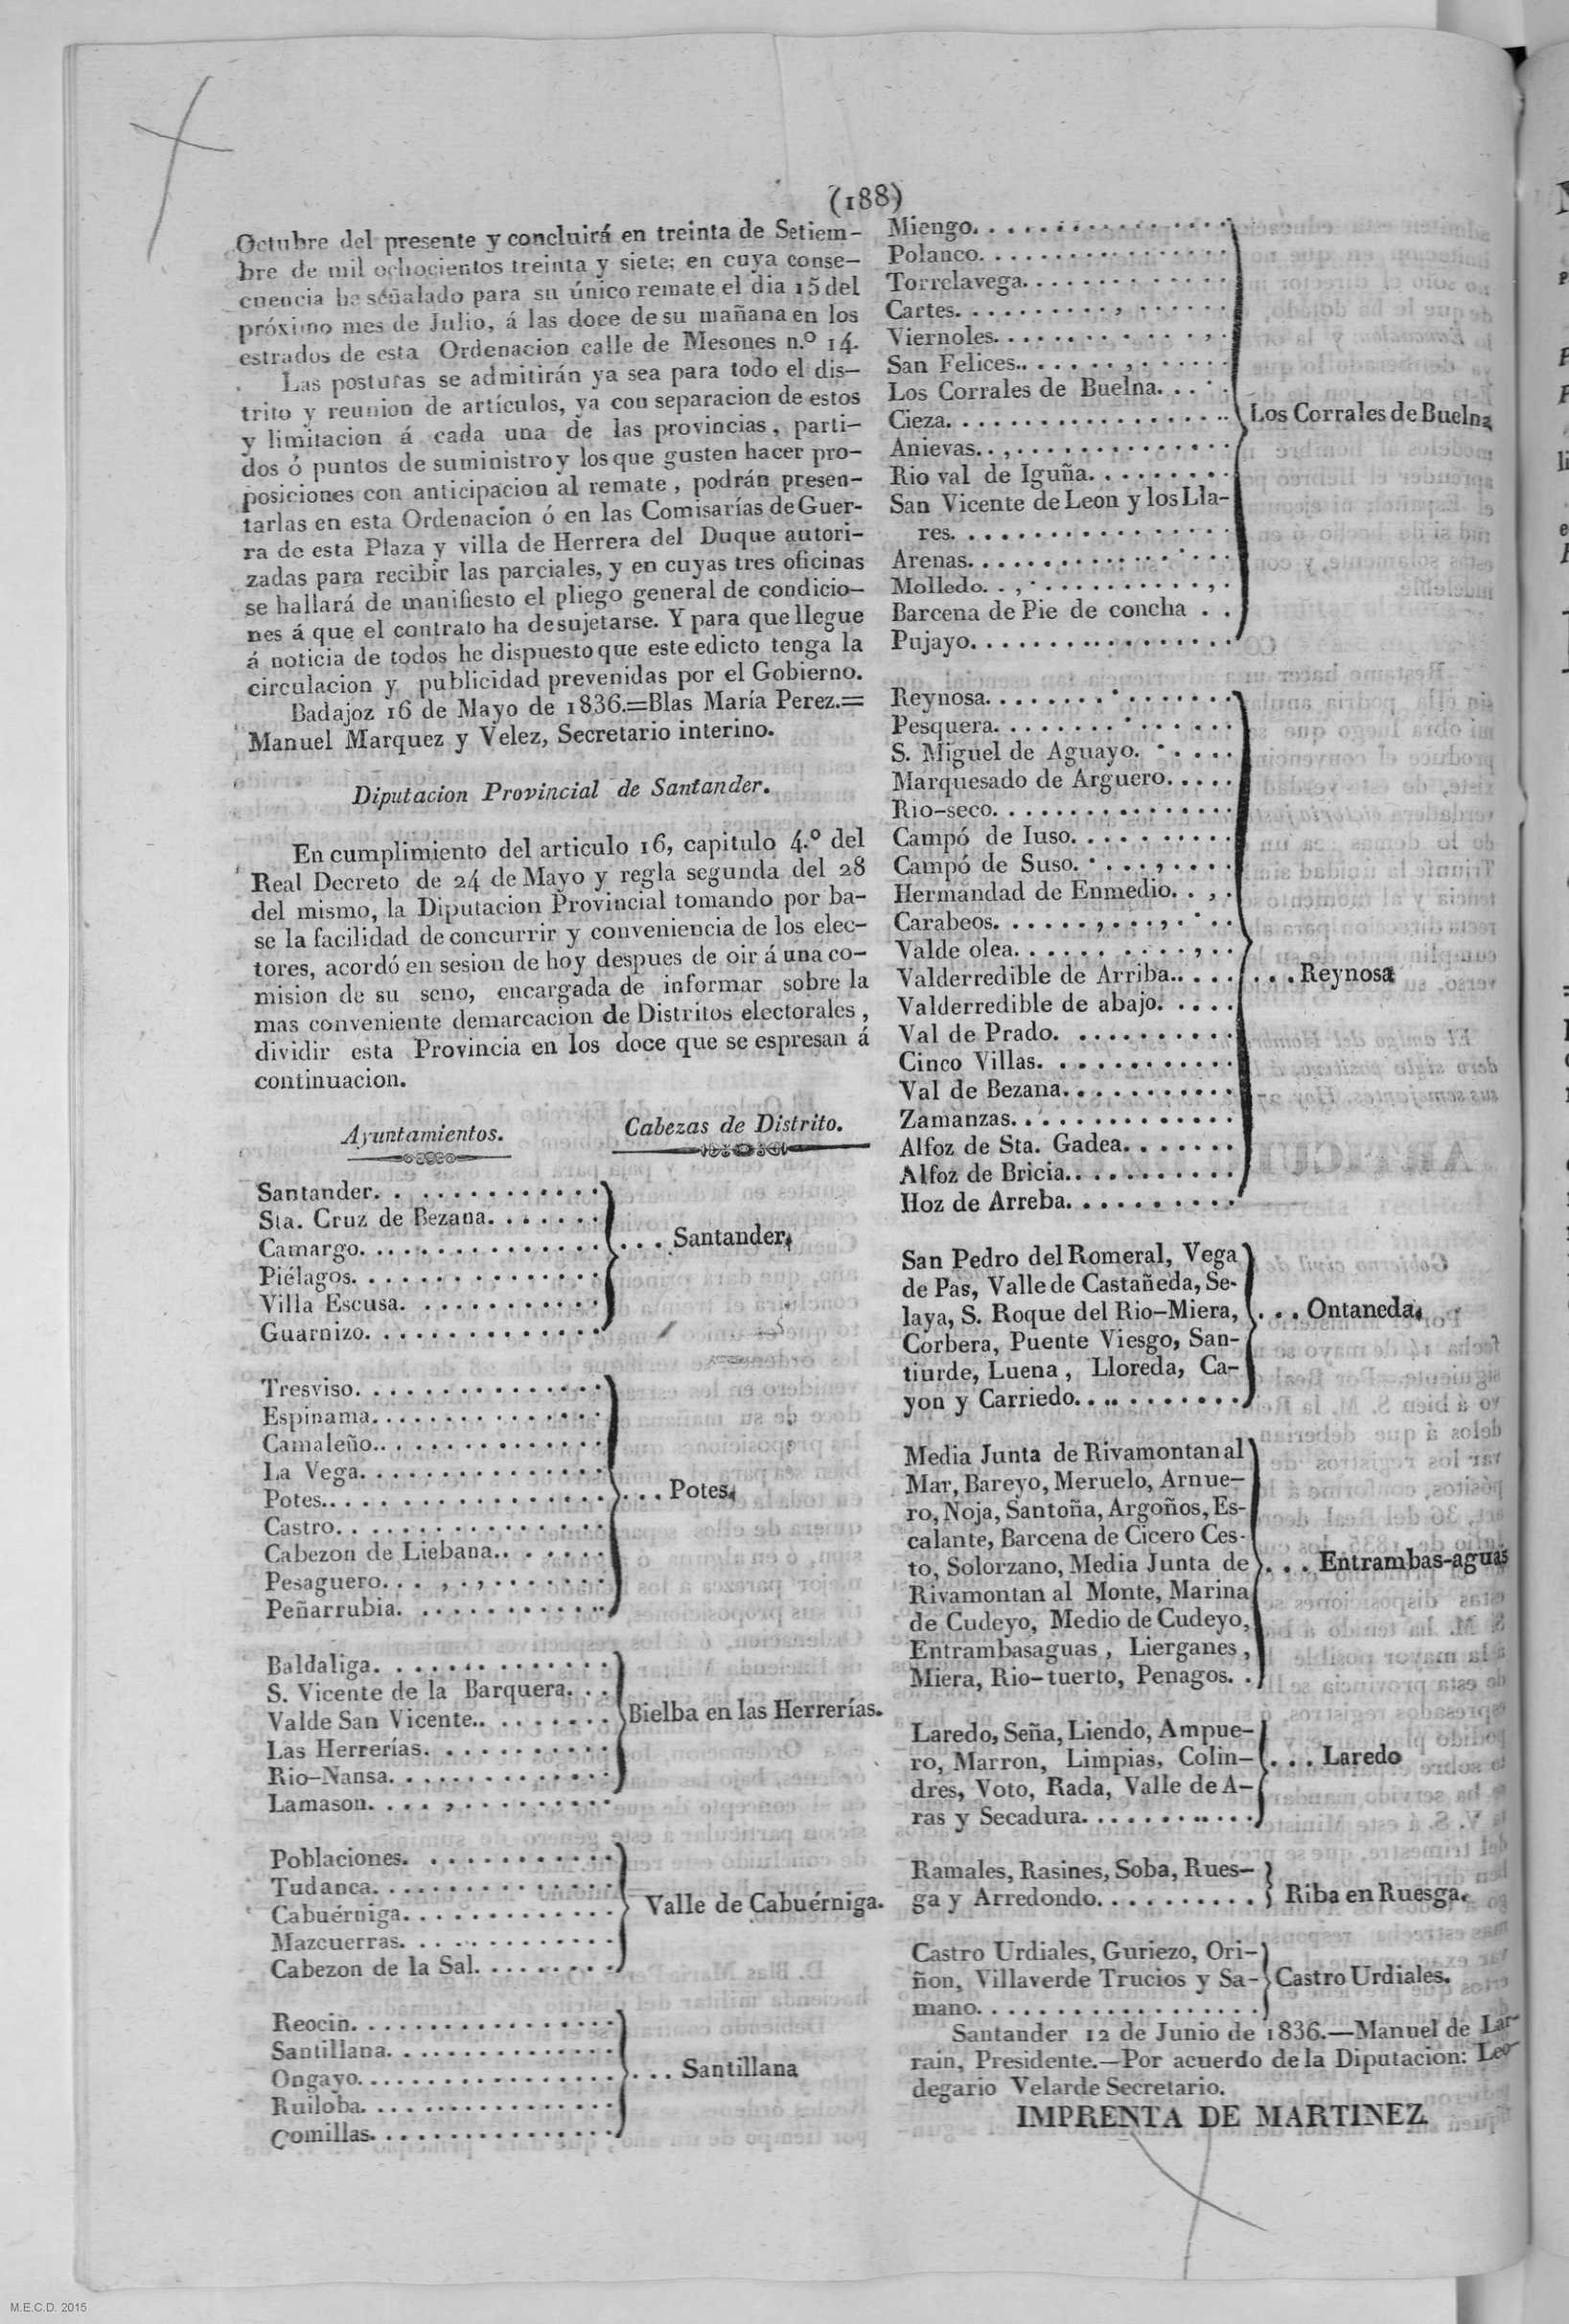 (188)
Octubre del presente y concluirá en treinta de Setiem-
bre de mil ochocientos treinta y siete; en cuya conse-
cuencia he señalado para su único remate el dia 15 del
próximo mes de Julio, á las doce de su mañana en los
estrados de esta Ordenacion calle de Mesones n.º 14.
Las posturas se admitirán ya sea para todo el dis-
trito y reunion de artículos, ya con separacion de estos
y limitacion á cada una de las provincias, parti-
dos ó puntos de suministro y los que gusten hacer pro-
posiciones con anticipacion al remate, podrán presen-
tarlas en esta Ordenacion ó en las Comisarías de Guer-
ra de esta Plaza y villa de Herrera del Duque autori-
zadas para recibir las parciales, y en cuyas tres oficinas
se hallará de manifiesto el pliego general de condicio-
nes á que el contrato ha de sujetarse. Y para que llegue
á noticia de todos he dispuesto que este edicto tenga la
circulacion y publicidad prevenidas por el Gobierno.
Badajoz 16 de Mayo de 1836.=Blas María Perez.=
Manuel Marquez y Velez, Secretario interino.
Diputacion Provincial de Santander.
En cumplimiento del articulo 16, capitulo 4.º del
Real Decreto de 24 de Mayo y regla segunda del 28
del mismo, la Diputacion Provincial tomando por ba-
se la facilidad de concurrir y conveniencia de los elec-
tores, acordó en sesion de hoy despues de oir á una co-
mision de su seno, encargada de informar sobre la
mas conveniente demarcacion de Distritos electorales,
dividir esta Provincia en los doce que se espresan á
continuacion.
Ayuntamientos. Cabezas de Distrito.
Santander.
Sta. Cruz de Bezana.
Camargo. ... Santander.
Piélagos.
Villa Escusa.
Guarnizo.
Tresviso.
Espinama.
Camaleño.
La Vega.
Potes. ... Potes.
Castro.
Cabezon de Liebana.
Pesaguero.
Peñarrubia.
Baldaliga.
S. Vicente de la Barquera.
Valde San Vicente. Bielba en las Herrerías.
Las Herrerías.
Rio-Nansa.
Lamason.
Poblaciones.
Tudanca.
Cabuérniga. Valle de Cabuérniga.
Mazcuerras.
Cabezon de la Sal.
Reocin.
Santillana.
Ongayo. ... Santillana
Ruiloba.
Comillas.
Miengo.
Polanco.
Torrelavega.
Cartes.
Viernoles.
San Felices.
Los Corrales de Buelna.
Cieza. Los Corrales de Buelna
Anievas.
Rio val de Iguña.
San Vicente de Leon y los Lla-
res.
Arenas.
Molledo.
Barcena de Pie de concha
Pujayo.
Reynosa.
Pesquera.
S. Miguel de Aguayo.
Marquesado de Arguero.
Rio-seco.
Campó de Iuso.
Campó de Suso.
Hermandad de Enmedio.
Carabeos.
Valde olea.
Valderredible de Arriba. ... Reynosa
Valderredible de abajo.
Val de Prado.
Cinco Villas.
Val de Bezana.
Zamanzas.
Alfoz de Sta. Gadea.
Alfoz de Bricia.
Hoz de Arreba.
San Pedro del Romeral, Vega
de Pas, Valle de Castañeda, Se-
laya, S. Roque del Rio-Miera, ... Ontaneda.
Corbera, Puente Viesgo, San-
tiurde, Luena, Lloreda, Ca-
yon y Carriedo.
Media Junta de Rivamontan al
Mar, Bareyo, Meruelo, Arnue-
ro, Noja, Santoña, Argoños, Es-
calante, Barcena de Cicero Ces-
to, Solorzano, Media Junta de ... Entrambas-aguas
Rivamontan al Monte, Marina
de Cudeyo, Medio de Cudeyo,
Entrambasaguas, Lierganes,
Miera, Rio-tuerto, Penagos.
Laredo, Seña, Liendo, Ampue-
ro, Marron, Limpias, Colin- ... Laredo
dres, Voto, Rada, Valle de A-
ras y Secadura.
Ramales, Rasines, Soba, Rues-
ga y Arredondo. Riba en Ruesga.
Castro Urdiales, Guriezo, Ori-
ñon, Villaverde Trucios y Sa- Castro Urdiales.
mano.
Santander 12 de Junio de 1836.—Manuel de Lar-
rain, Presidente.—Por acuerdo de la Diputacion: Leo-
degario Velarde Secretario.
IMPRENTA DE MARTINEZ
M.E.C.D. 2015